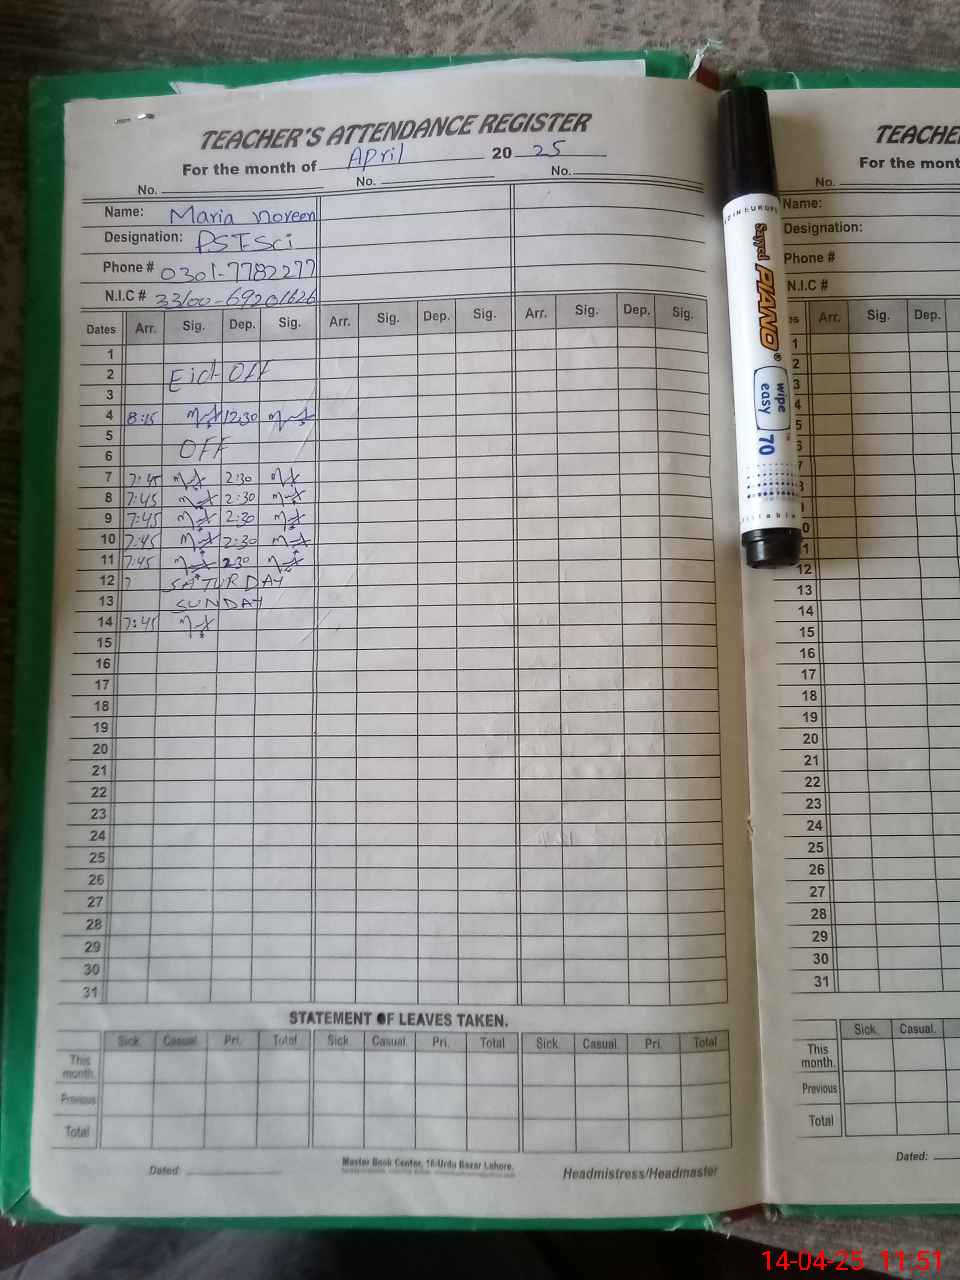 TEACHER'S ATTENDANCE REGISTER
For the month of April 20 25
No. No. No.
Name: Maria noreen
Designation: PST-Sci
Phone # 0301-7782277
N.I.C # 33100-69201626
Dates Arr. Sig. Dep. Sig. Arr. Sig. Dep. Sig. Arr. Sig. Dep. Sig.
1
2 Eid OFF
3
4 8:15 12:30
5 OFF
6
7 7:45 2:30
8 7:45 2:30
9 7:45 2:30
10 7:45 2:30
11 7:45 2:30
12 SATURDAY
13 SUNDAY
14 7:45
15
16
17
18
19
20
21
22
23
24
25
26
27
28
29
30
31
STATEMENT OF LEAVES TAKEN.
Sick. Casual. Pri. Total Sick Casual. Pri. Total Sick. Casual. Pri. Total
This month.
Previous
Total
Dated: Master Book Center, 16-Urdu Bazar Lahore. Headmistress/Headmaster
TEACHE
For the mont
No.
Name:
Designation:
Phone #
N.I.C #
es Arr. Sig. Dep.
1
2
3
4
5
6
7
8
9
10
11
12
13
14
15
16
17
18
19
20
21
22
23
24
25
26
27
28
29
30
31
Sick. Casual.
This month.
Previous
Total
Dated:
Sayyed PIANO®
wipe easy 70
14-04-25 11:51